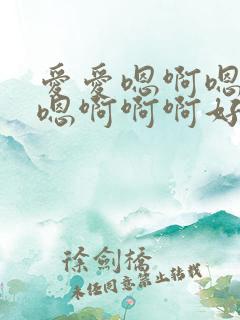 爱爱嗯啊嗯
嗯啊啊啊好
徐剑桥
未经同意禁止转载